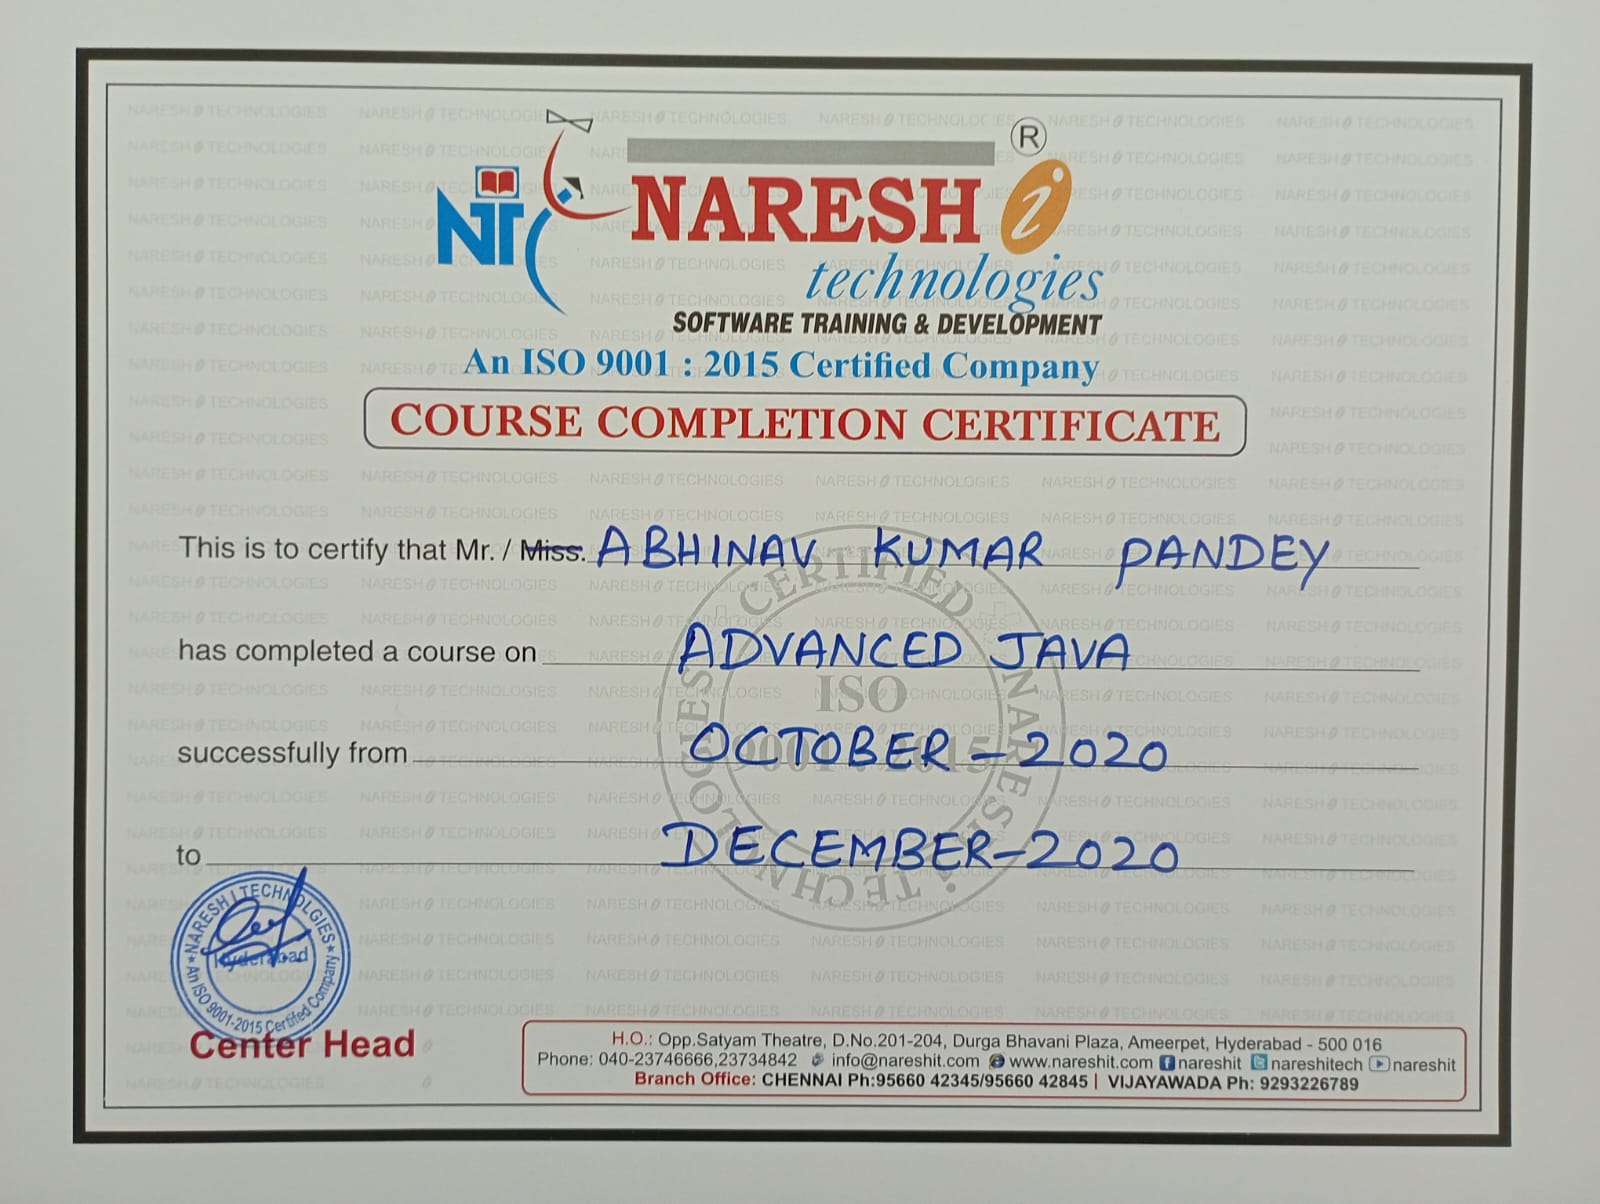 NTC
NARESH i ®
technologies
SOFTWARE TRAINING & DEVELOPMENT
An ISO 9001 : 2015 Certified Company
COURSE COMPLETION CERTIFICATE
This is to certify that Mr. / Miss. ABHINAV KUMAR PANDEY
has completed a course on ADVANCED JAVA
successfully from OCTOBER-2020
to DECEMBER-2020
CERTIFIED NARESH i TECHNOLOGIES
ISO
9001 : 2015
NARESH I TECHNOLGIES
Hyderabad
An ISO 9001-2015 Certifed Company
Center Head
H.O.: Opp.Satyam Theatre, D.No.201-204, Durga Bhavani Plaza, Ameerpet, Hyderabad - 500 016
Phone: 040-23746666,23734842 info@nareshit.com www.nareshit.com nareshit nareshitech nareshit
Branch Office: CHENNAI Ph:95660 42345/95660 42845 | VIJAYAWADA Ph: 9293226789